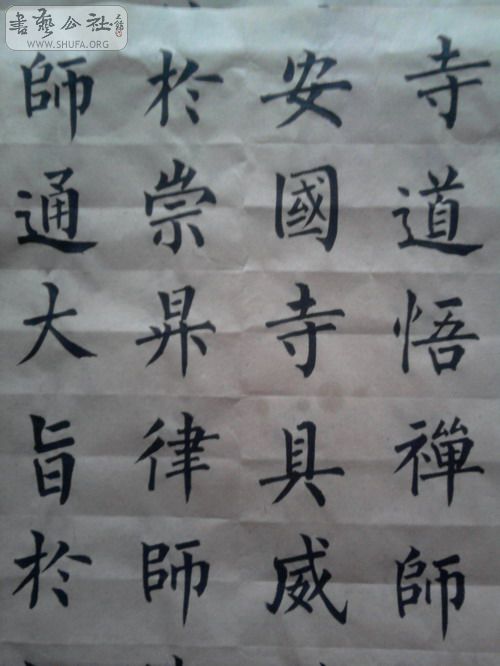 書藝公社
www.SHUFA.ORG
寺道悟禪師
安國寺具威
於崇昇律師
師通大旨於